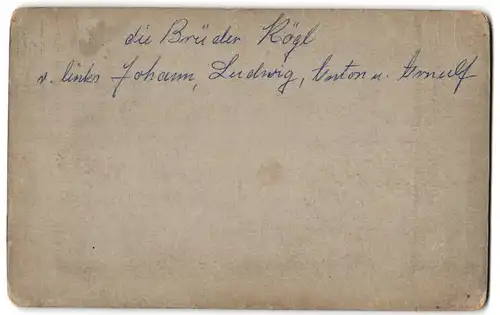 die Brüder Kögl
v. links Johann, Ludwig, Anton u. Arnulf